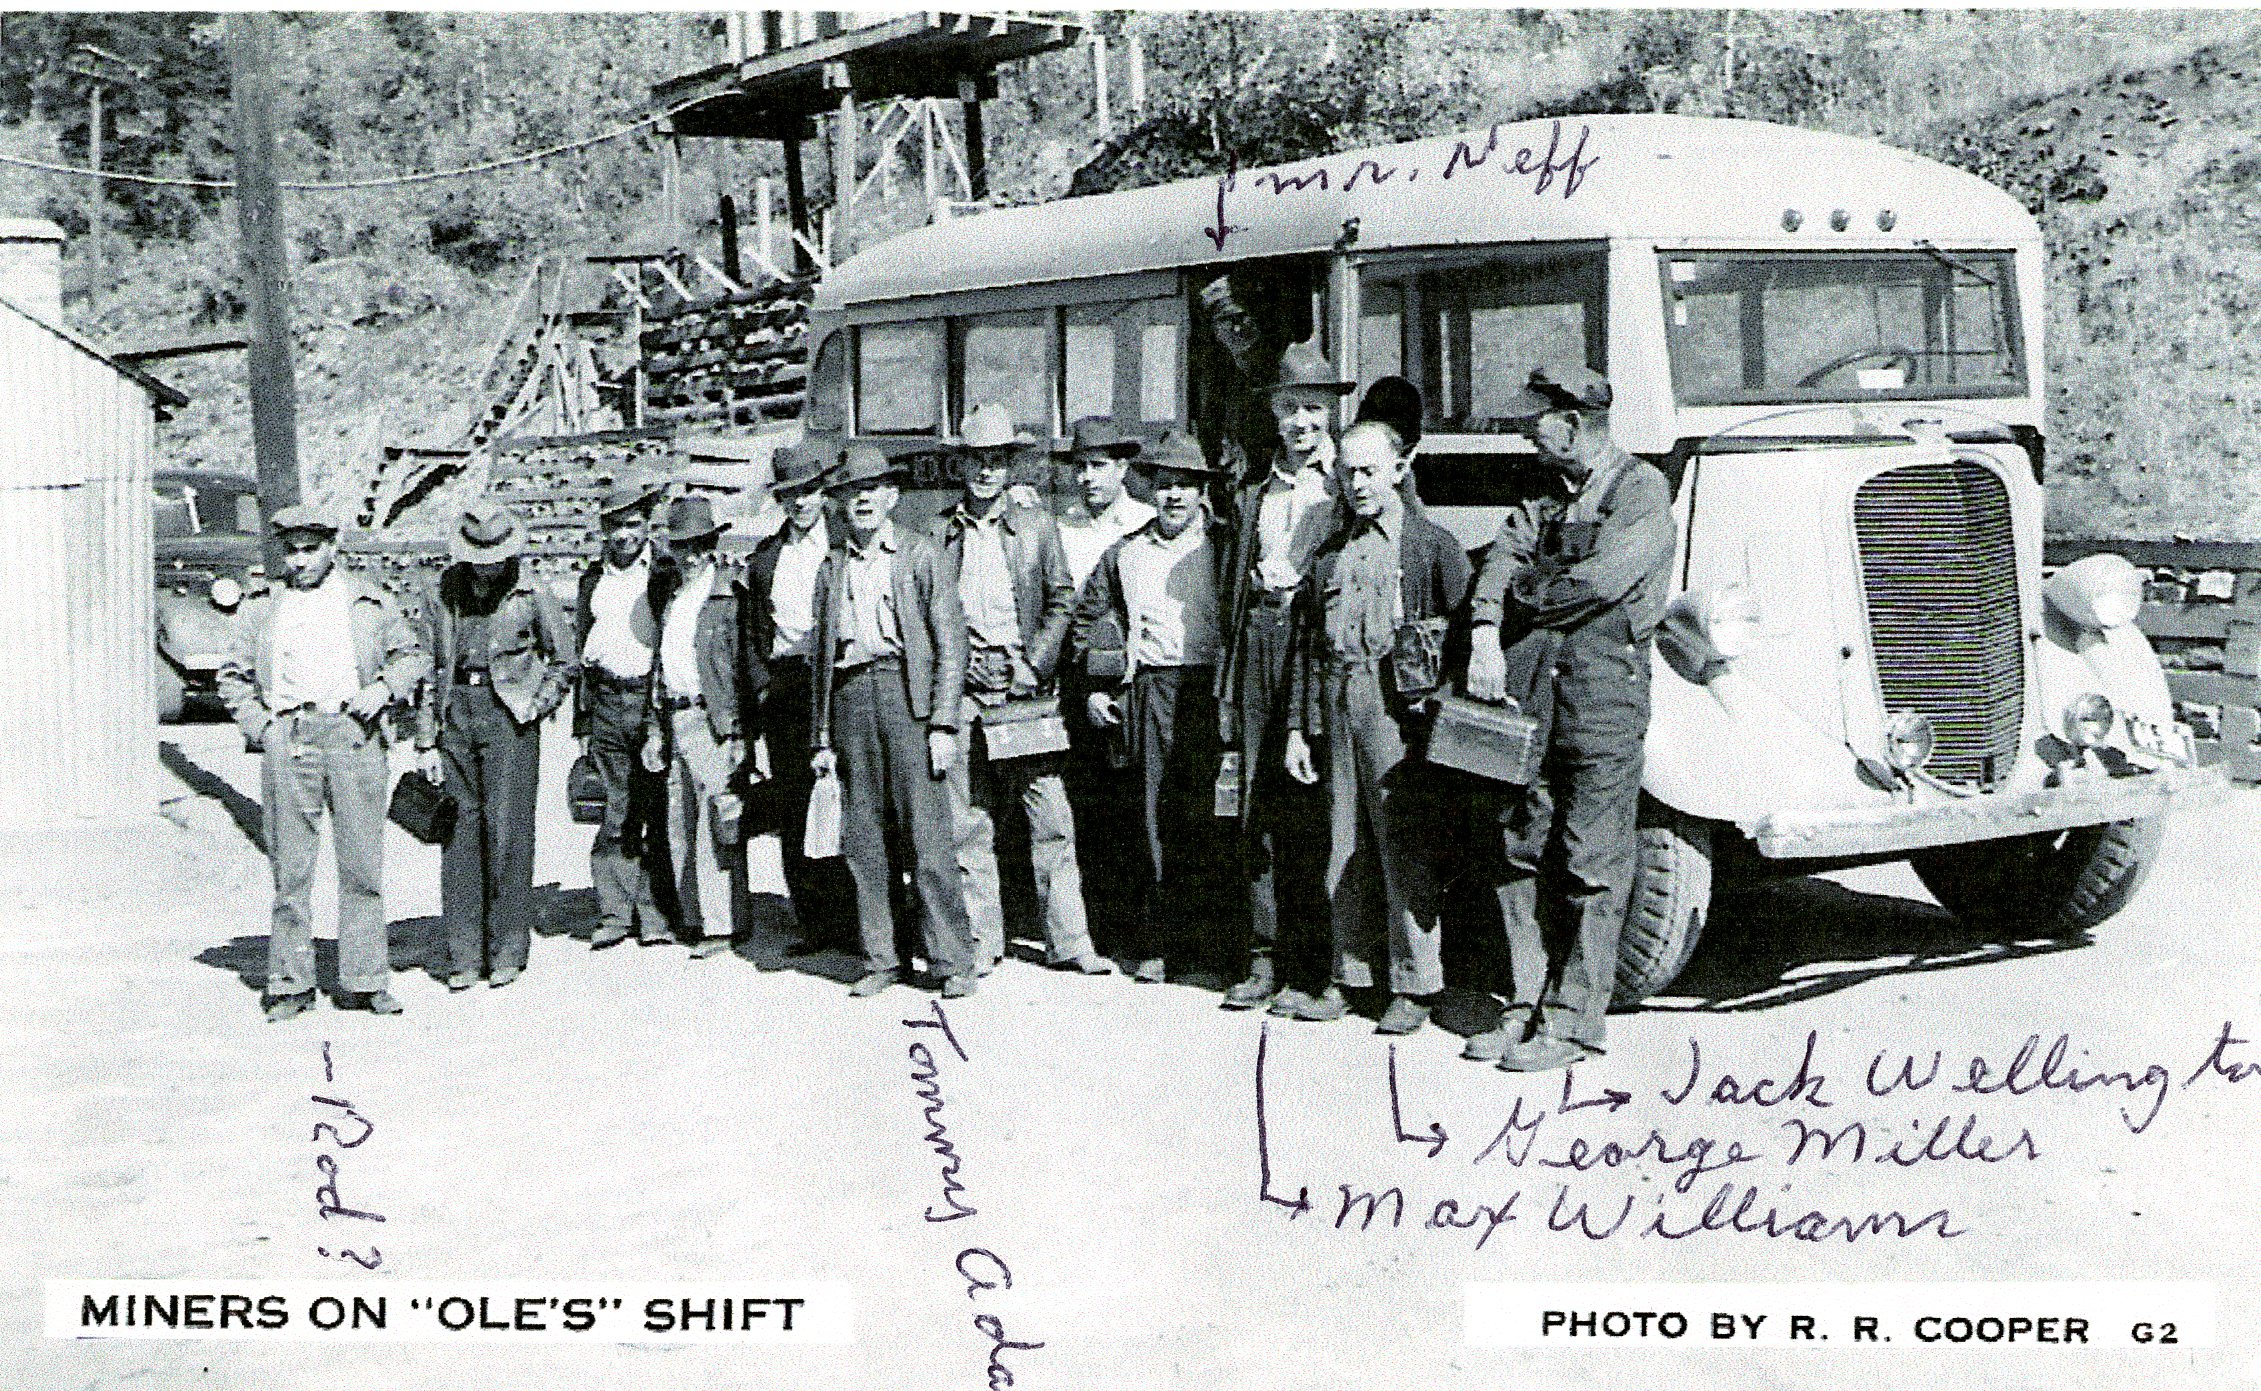 mr. Neff
Jack Wellington
George Miller
Max Williams
- Rod?
Tommy Ada
MINERS ON "OLE'S" SHIFT
PHOTO BY R. R. COOPER G2